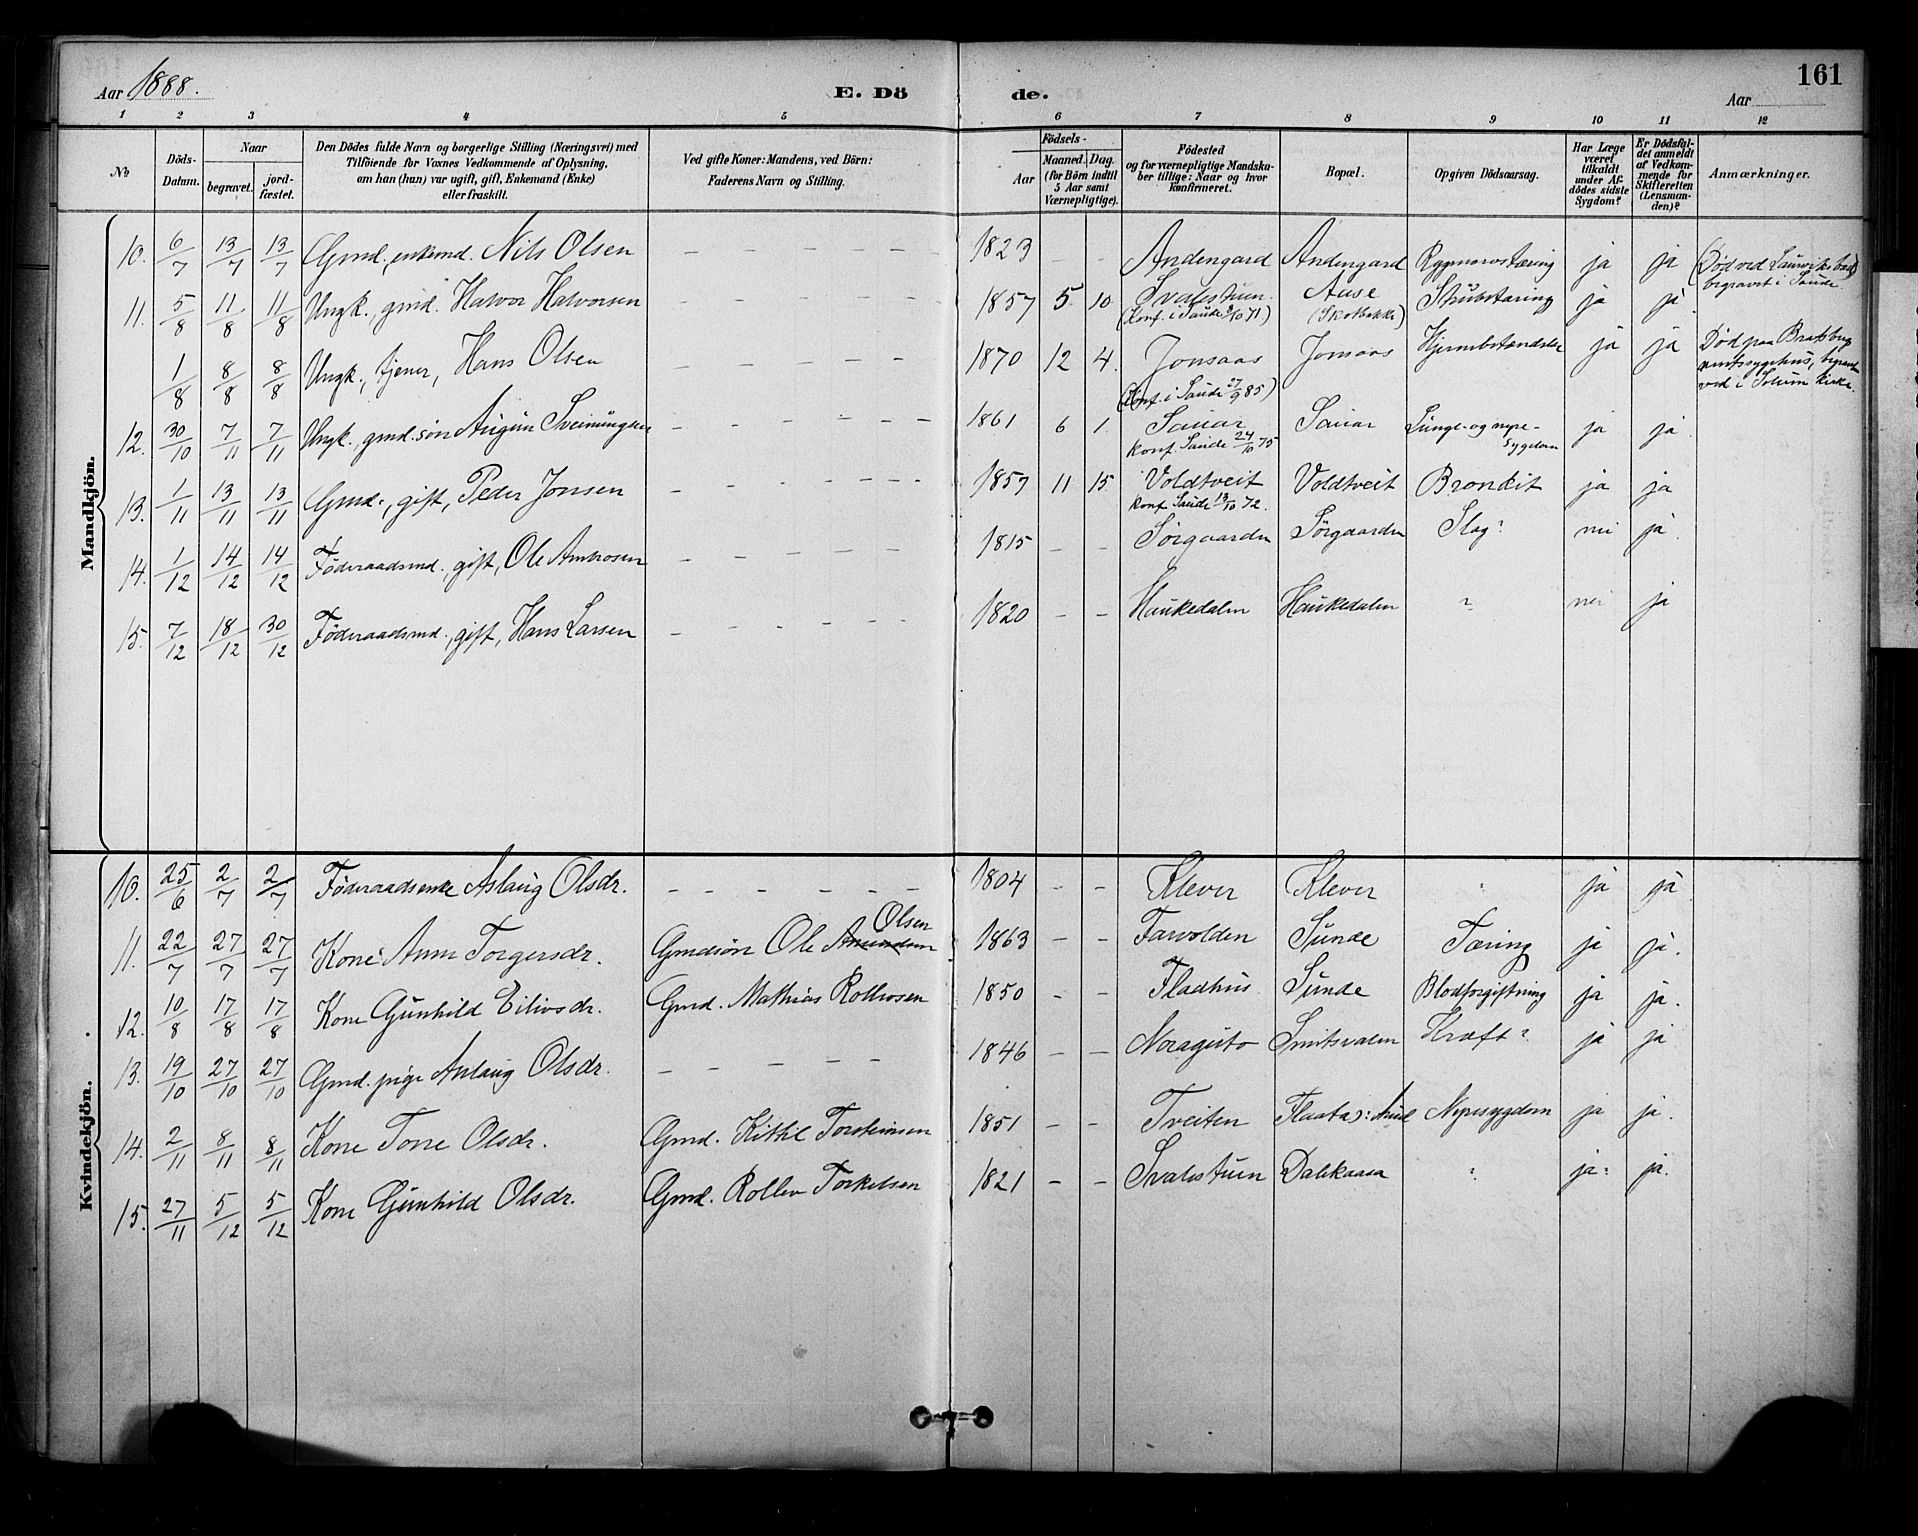 161
Aar 1888. E. Dö de. Aar
1 2 3 4 5 6 7 8 9 10 11 12
No. Döds-Datum. Naar begravet. jord-fæstet. Den Dödes fulde Navn og borgerlige Stilling (Næringsvei) med Tilföiende for Voxnes Vedkommende af Oplysning, om han (hun) var ugift, gift, Enkemand (Enke) eller fraskilt. Ved gifte Koner: Mandens, ved Börn: Faderens Navn og Stilling. Aar Födsels- Maaned. Dag. (for Börn indtil 5 Aar samt Værnepligtige). Födested og for værnepligtige Mandskaber tillige: Naar og hvor konfirmeret. Bopæl. Opgiven Dödsaarsag. Har Læge været tilkaldt under Afdödes sidste Sygdom? Er Dödsfaldet anmeldt af Vedkommende for Skifteretten (Lensmanden)? Anmærkninger.
Mandkjön.
10. 6/7 13/7 13/7 Gmd., enkemd. Nils Olsen – – – – – 1823 – – Andengard Andengard Rygmarvstæring ja ja (Død ved Laurviks bad) begravet i Saude
11. 5/8 11/8 11/8 Ungk., gmd. Halvor Halvorsen – – – – – 1857 5 10 Svalestuen (Konf. i Saude 8/10 71) Aase (Skolbakke) Strubetæring ja ja
1/8 8/8 8/8 Ungk., tjener, Hans Olsen – – – – – 1870 12 4. Jonsaas (Konf. i Saude 27/9 85) Jonsaas Hjernebetændelse ja ja Død paa Bratsberg amtssygehus, begravet ved i Solum kirke
12. 30/10 7/11 7/11 Ungk. gmd. søn Augun Sveinungsen – – – – – 1861 6 1. Sauar konf. Saude 24/10 75 Sauar Lunge- og nyre-sygdom ja ja
13. 1/11 13/11 13/11 Gmd., gift, Peder Jonsen – – – – – 1857 11 15 Voldtveit konf. Saude 13/10 72. Voldtveit Bronkit ja ja
14. 1/12 14/12 14/12 Föderaadsmd., gift, Ole Ambrosen – – – – – 1815 – – Sörgaarden Sörgaarden Slag? nei ja
15. 7/12 18/12 30/12 Föderaadsmd., gift, Hans Larsen – – – – – 1820 – – Haukedalen Haukedalen ? nei ja
Kvindekjön.
10. 25/6 2/7 2/7 Föderaadsenke Aslaug Olsdr. – – – – – – 1804 – – Klever Klever " ja ja
11. 22/7 27/7 27/7 Kone Anne Torgersdr. Gmdsön Ole Olsen 1863 – – Farvolden Sunde Tæring ja ja.
12. 10/8 17/8 17/8 Kone Gunhild Eilivsdr. Gmd. Mathias Rollevsen 1850 – – Fladhus Sunde Blodforgiftning ja ja.
13. 19/10 27/10 27/10 Gmd. pige Anlaug Olsdr. – – – – – 1846 – – Noraguto Smitsvalen Kræft? ja ja
14. 2/11 8/11 8/11 Kone Tone Olsdr. Gmd. Kittil Torsteinsen 1851 – – Tveiten Flaata Nyresygdom ja ja.
15. 27/11 5/12 5/12 Kone Gunhild Olsdr. Gmd. Rollev Torkelsen 1821 – – Svalestuen Dalskaasa ? ja ja.